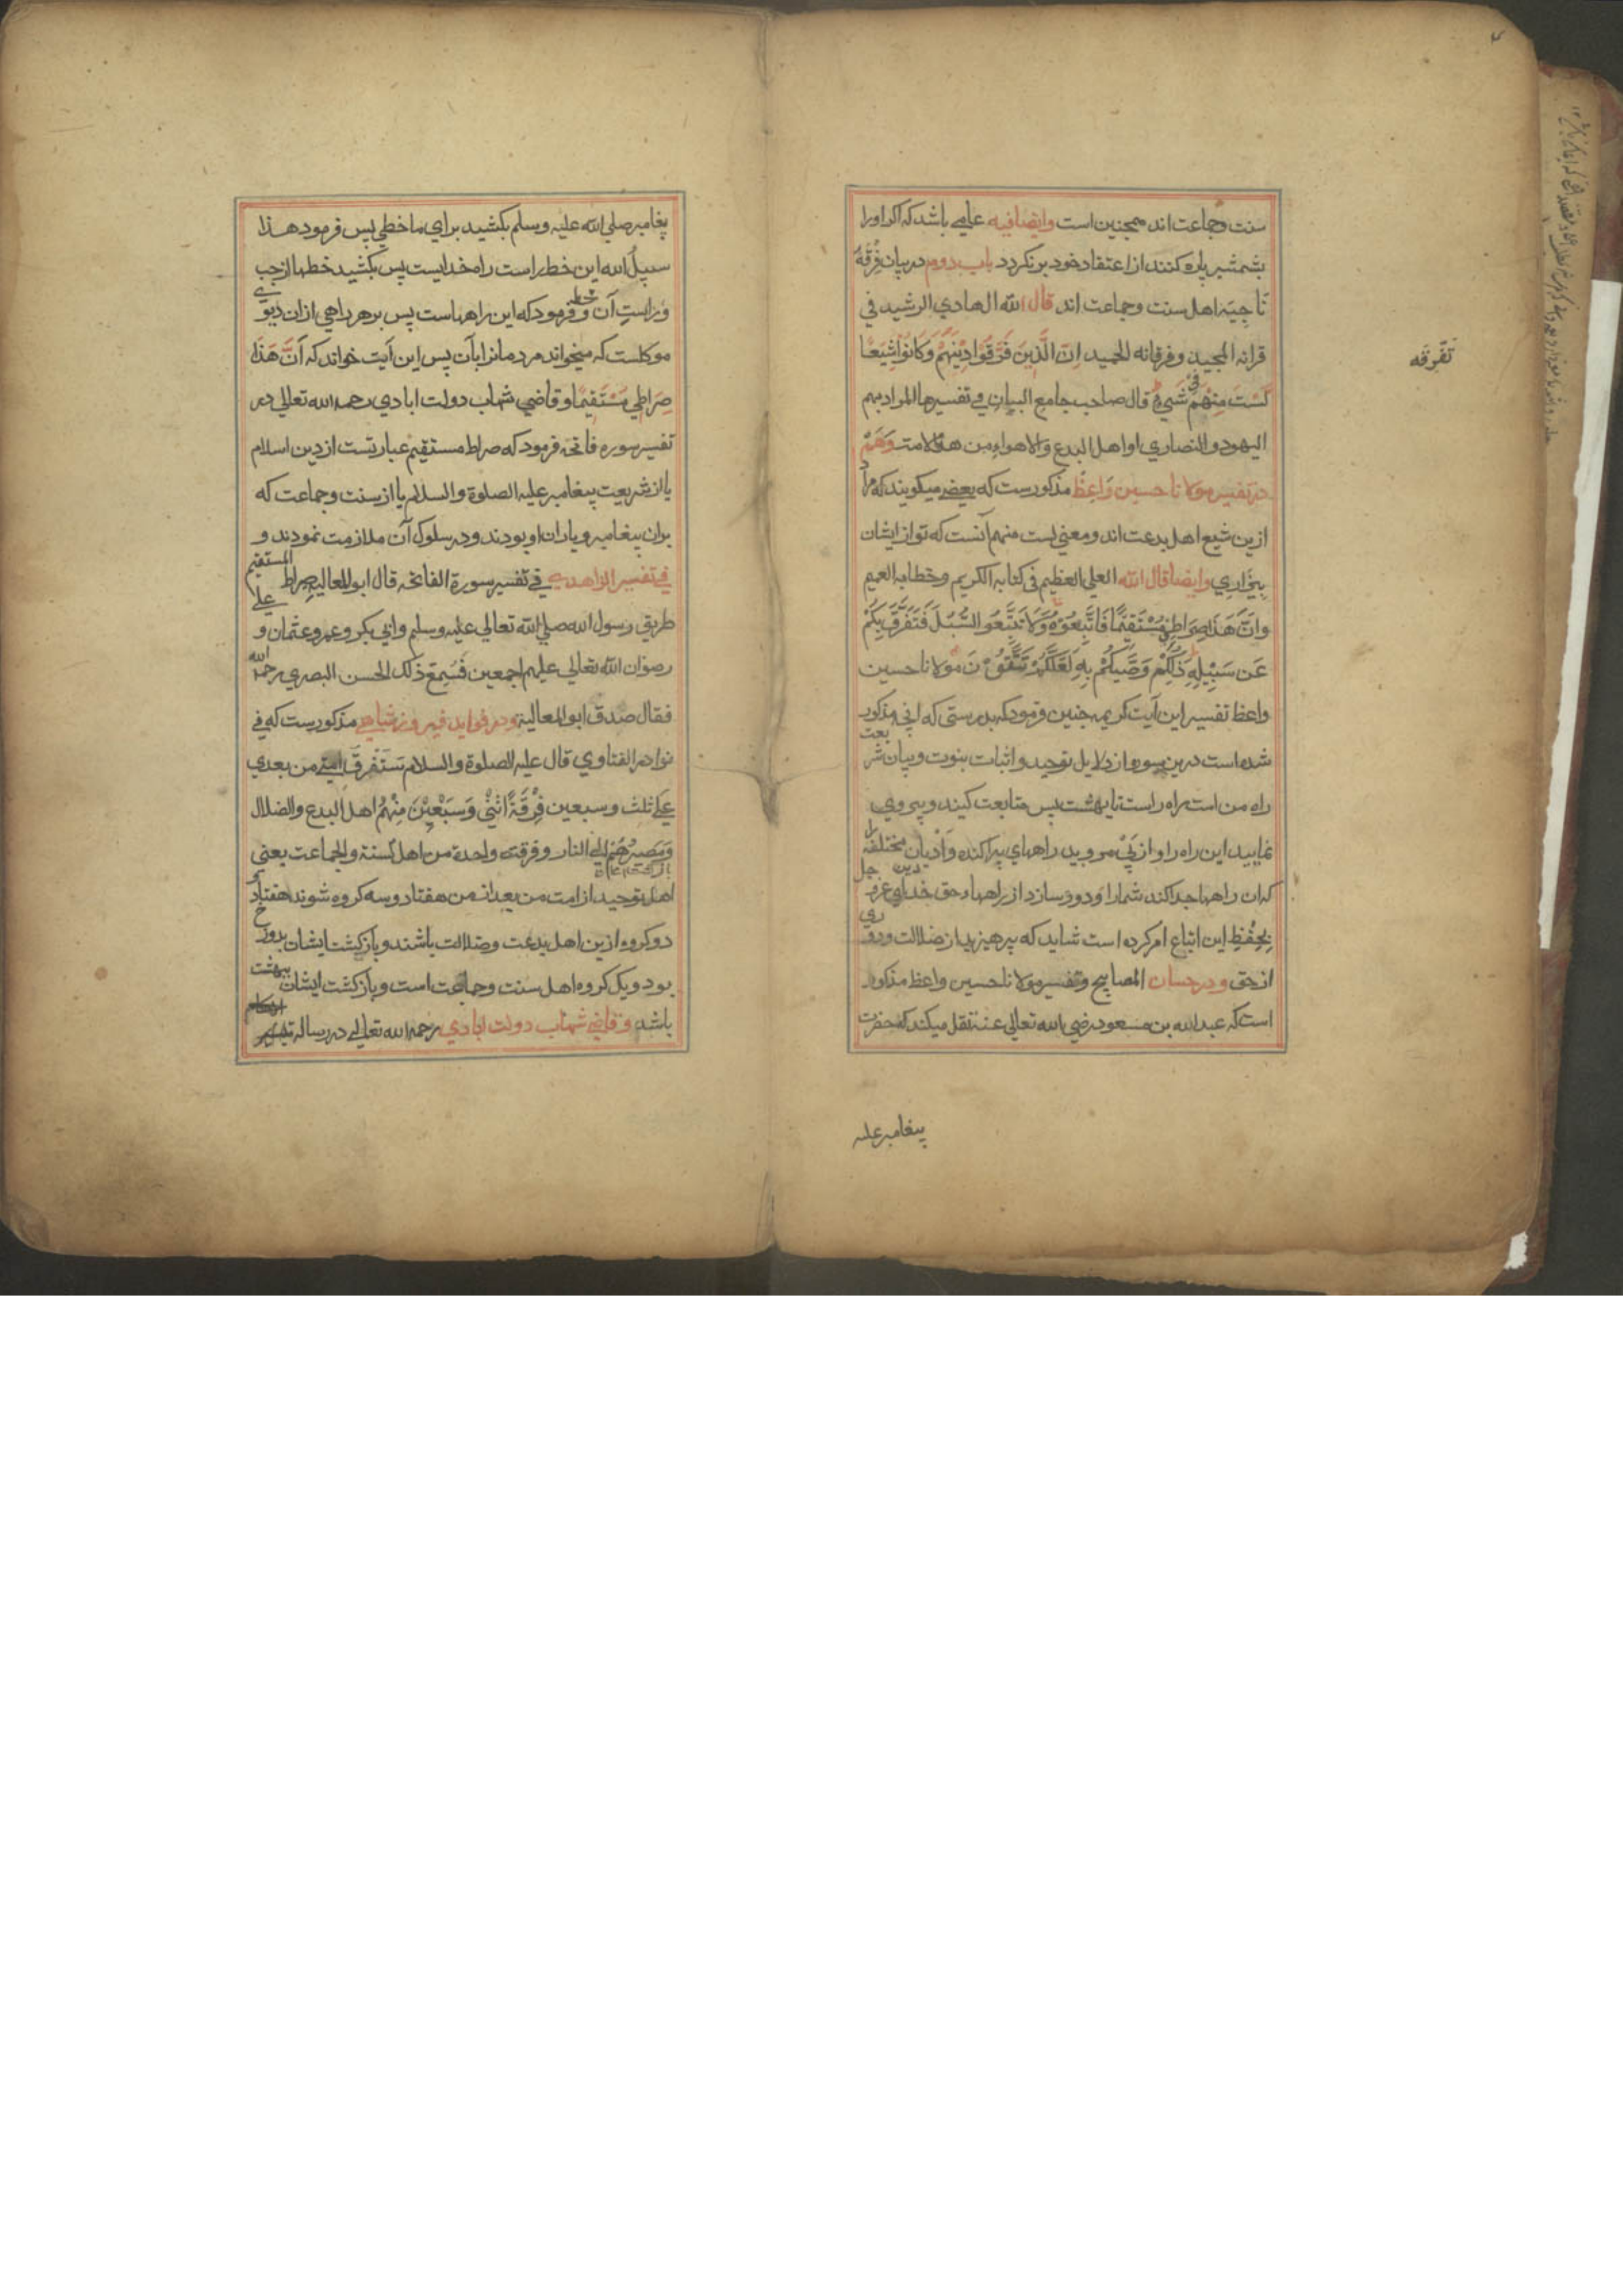 سنت وجماعت اند همچنین است وایضا فیه عامی باشد که اکر اورا
بشمشیر پاره کنند از اعتقاد خود بر نکردد باب دوم در بیان فرقهٔ
ناجیه اهل سنت وجماعت اند قال الله الهادي الرشید في
قرانه المجید وفرقانه الحمید اِنَّ الَّذِینَ فَرَّقُوا دِیْنَهُمْ وَکَانُوْا شِیَعًا
لَسْتَ مِنْهُمْ فِي شَيْءٍ قال صاحب جامع البیان في تفسیرها المراد بهم
الیهود والنصاري او اهل البدع والاهواء من هذه الامت وَهَمْ
در تفسیر مولانا حسین واعظ مذکورست که بعضي میکویند که مراد
ازین شیع اهل بدعت اند ومعني لست منهم آنست که تو از ایشان
بیزاري وایضا قال الله العلي العظیم في کتابه الکریم وخطابه العمیم
وَاَنَّ هَذَا صِرَاطِي مُسْتَقِیْمًا فَاتَّبِعُوْهُ وَلَا تَتَّبِعُوا السُّبُلَ فَتَفَرَّقَ بِکُمْ
عَنْ سَبِیْلِهِ ذَلِکُمْ وَصَّیکُمْ بِهِ لَعَلَّکُمْ تَتَّقُوْنَ مولانا حسین
واعظ تفسیر این آیت کریمه چنین فرمود که بدرستی که انچه مذکور
شده است درین سوره از دلایل توحید واثبات بنوت وبیان شریعت
راه من است راه راست تا بهشت پس متابعت کنید وپیروي
نمایید این راه را واز پَيْ مروید راههاي پراکنده وَاَدْیان مختلفه را
که ان راهها جدا کند شمارا ودور سازد از راهها دین حق خداي عز وجل
بِحِفْظِ این اتباع امر کرده است شاید که پرهیزید از ضلالت ودوري
از حق ودر حسان المصابیح وتفسیر مولانا حسین واعظ مذکور
است که عبدالله بن مسعود رضي الله تعالی عنه نقل میکند که حضرت
پیغامبر علیه
تَفْرِقَه
پغامبر صلي الله علیه وسلم بکشید براي ما خطي پس فرمود هذا
سبیلُ الله این خط راست راه خدایست پس بکشید خطها از چپ
وراست آن خط وفرمود که این راههاست پس بر هر راهي ازان دیوي
موکلست که میخواند مردمانرا بآن پس این آیت خواند که اَنَّ هَذَا
صِرَاطِي مُسْتَقِیْمًا وقاضي شهاب دولت ابادي رحمه الله تعالي در
تفسیر سوره فاتحه فرمود که صراط مستقیم عبارتست از دین اسلام
یا از شریعت پیغامبر علیه الصلوة والسلام یا از سنت وجماعت که
بران پیغامبر ویاران او بودند ودر سلوک آن ملازمت نمودند و
في تفسیر الزاهدي في تفسیر سورة الفاتحه قال ابو المعالیه صراط المستقیم
طریق رسول الله صلي الله تعالي علیه وسلم وابي بکر وعمر وعثمان وعلي
رضوان الله تعالي علیهم اجمعین فَسُمِعَ ذلک الحسن البصري رحمه الله
فقال صدق ابو المعالیه ودر فواید فیروز شاهي مذکورست که في
نوادر الفتاوي قال علیه الصلوة والسلام سَتَفْرِقُ امتي من بعدي
علی ثلث وسبعین فِرْقَةً اثْنَيْ وَسَبْعِیْنَ مِنْهُمْ اهل البدع والضلال
وَمَصِیرُهُم الي النار وفرقته واحدة من اهل السنة والجماعت یعني
اهل توحید از امت من بعد از من هفتاد وسه کروه شوند هفتاد و
دو کروه ازین اهل بدعت وضلالت باشند وبازکشت ایشان بدوزخ
بود ویک کروه اهل سنت وجماعت است وبازکشت ایشان ببهشت
باشد وقاضي شهاب دولت ابادي رحمه الله تعالي در رساله